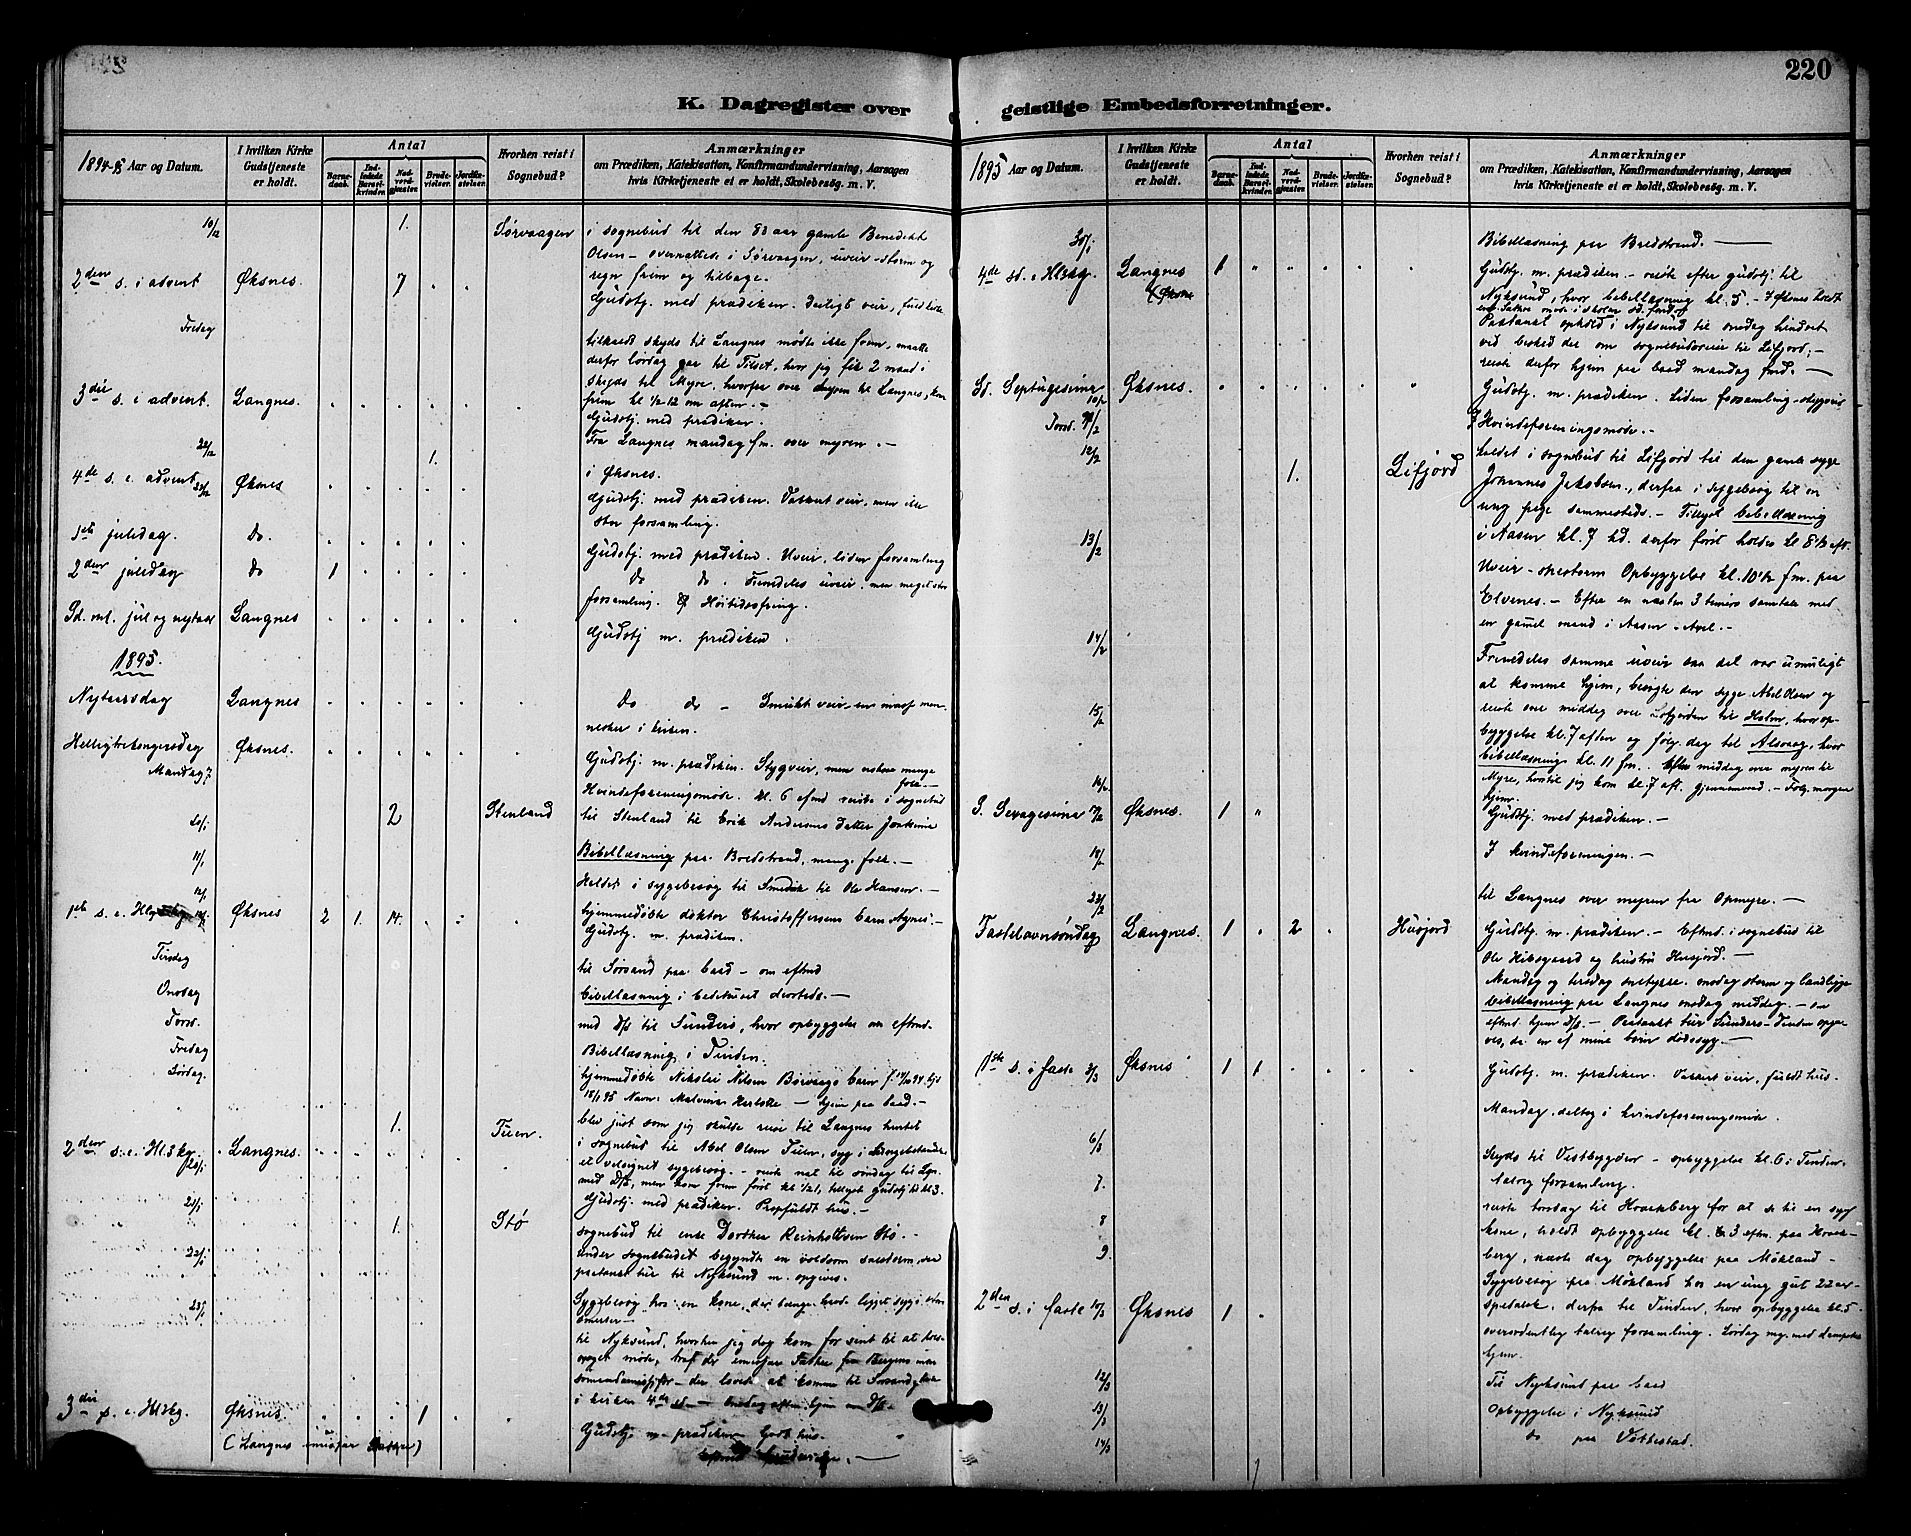 220
K. Dagregister over geistlige Embedsforretninger.
1894-95 Aar og Datum.
I hvilken Kirke Gudstjeneste er holdt.
Antal
Barnedaab.
Indledede Barselkvinder.
Nadverdgjester.
Brudevielser.
Jordkastelser.
Hvorhen reist i Sognebud?
Anmærkninger
om Prædiken, Katekisation, Konfirmandundervisning, Aarsagen
hvis Kirketjeneste ei er holdt, Skolebesøg. m. V.
10/12 1. Sørvaagen i sognebud til den 83 aar gamle Benedikt
Olsen - overnattede i Sørvaagen, uveir - storm og
regn frem og tilbage.
2den s. i advent Øksnes. 7
Gudstj. med prædiken. Deiligt veir, fuld kirke
Fredag
tilkaldt skyds til Langnes mødte ikke frem, maatte
derfor lørdag gaa til Tilset, hvor jeg fik 2 mand i
skyds til Myre, hvorfra over myren til Langnes, kom
frem kl 1/2 12 om aften. -
3die s. i advent. Langnes.
Gudstj. med prædiken.
Fra Langnes mandag fm. over myren. -
22/12 1. i Øksnes.
4de s. i advent 23/12 Øksnes
Gudstj. med prædiken. Vakkert veir, men ikke
stor forsamling.
1ste juledag. do.
Gudstj med prædiken. Uveir, liden forsamling
2den juledag do 1
do do. Fremdeles uveir, men meget stor
forsamling. Høitidsofring.
Sd. ml. jul og nytaar Langnes
Gudstj m. prædiken.
1895.
Nytaarsdag Langnes
do do - Smukt veir, en masse mennesker i kirken.
Helligtrekongersdag Øksnes.
Gudstj. m. prædiken. Stygveir, men endnu mange folk. -
Mandag 7
Kvindeforeningsmøde. kl. 6 efmd reiste i sognebud
2 Stenland til Stenland til Erik Andersens datter Joakime
10/1
Bibellæsning paa Bredstrand, mange folk. -
11/1
Heldet i sygebesøg til Smedvik til Ole Hansen. -
12/1
hjemmedøbte doktor Christoffersens barn Agnes. -
1ste s. e. Hl 13/1 Øksnes 2 1. 14.
Gudstj. m. prædiken.
Tirsdag
til Sørsand paa baad - om eftmd
Onsdag
bibellæsning i bedehuset dersteds. -
Torsd.
med D/S til Tinden, hvor opbyggelse om eftmd.
Fredag
Bibellæsning i Tinden.
Lørdag.
hjemmedøbte Nikolai Nilsen Børvaags barn
Navn: Malvine Herlotte - hjem paa baad. -
1. Tuen.
blev just som jeg skulde reise til Langnes hentet
i sognebud til Abel Olsen Tuen, syg i lungebetændelse
et velsignet sygebesøg. - reiste nat til søndag til Lgn.
med D/S, men kom frem først kl 1/2 1, tillyst gudstj til kl 3.
2den s. e. Hl3kg. 20/1 Langnes
Gudstj. med prædiken. Propfuldt hus. -
21/1 1. Stø
sognebud til enke Dorthea Reinholtsen Stø. -
under sognebudet begyndte en voldsom snestorm, saa
paatænkt tur til Nyksund m. opgives.
22/1
Sygebesøg hos en kone, der længe havde ligget syg i store
smerter -
23/1
til Nyksund, hvorhen jeg dog kom for sent til at
møde, traf der emissær Sathre fra Bergens indre
sømandsmission - der lovede at komme til Sørsand
i kirken 4de sd. - Onsdag aften hjem m D/S.
3die s. e. Hl3kg. Øksnes 1
Gudstj. m. prædiken Godt hus.
(Langnes emissær Sathre)
1895 Aar og Datum.
I hvilken Kirke Gudstjeneste er holdt.
Antal
Barnedaab.
Indledede Barselkvinder.
Nadverdgjester.
Brudevielser.
Jordkastelser.
Hvorhen reist i Sognebud?
Anmærkninger
om Prædiken, Katekisation, Konfirmandundervisning, Aarsagen
hvis Kirketjeneste ei er holdt, Skolebesøg. m. V.
30/1
Bibellæsning paa Bredstrand. -
4de sd. e. Hl3kg. Langnes 1
Gudstj. m. prædiken - reiste efter gudstj. til
Nyksund, hvor bibellæsning kl. 5. - I Øksnes holdt
em. Sathre møde i skolen sd. formd
Paatænkt ophold i Nyksund til onsdag hindret
ved besked der om sognebudsreise til Lifjord, -
reiste derfor hjem paa baad mandag fmd. -
Sd. Septuagesima 10/2 Øksnes.
Gudstj. m. prædiken. Liden forsamling - stygveir
Torsd. 7/2
I Kvindeforeningsmøde. -
12/2 1. Lifjord
heldet i sognebud til Lifjord til den gamle syge
Johannes Jakobsen, derfra i sygebesøg til en
ung pige sammesteds. - Tillyst bibellæsning
i Aasen kl. 7 kd. derfor først holdes kl 8½ eft.
13/2
Uveir - snestorm Opbyggelse kl. 10½ fm. paa
Elvenes. - Efter en næsten 3 timers samtale med
en gamel mand i Aasen - Axel. -
14/2
Fremdeles samme uveir saa det var umuligt
at komme hjem, besøgte den syge Abel Olsen og
15/2
reiste over middag over Lifjorden til Holm, hvor opbyggelse kl. 7 aften og følg. dag til Alsvaag, hvor
bibellæsning kl. 11 fm. Efter middag over myren til
16/2
Myre, hvortil jeg kom kl. 7 aft. gjennemvaad. - Følg. morgen
hjem.
S. Sexagesima 17/2 Øksnes. 1
Gudstj. med prædiken. -
18/2
I kvindeforeningen. -
23/2
til Langnes over myren fra Opmyre. -
Fastelavnsøndag Langnes. 1 2 Husjord
Gudstj. m. prædiken. - Eftmd. i sognebud til
Ole Hilsgaard og hustru Husjord. -
Mandag og tirsdag snetykke. onsdag storm og landligge
bibellæsning paa Langnes onsdag middag. - om
eftmd. hjem D/S. - Paatænkt tur Tinden opgives, da en af mine børn dødssyg. -
1ste s. i faste 3/3 Øksnes 1 1
Gudstj. m. prædiken. Vakkert veir, fuldt hus.
Mandag. deltog i kvindeforeningsmøde.
6/3
Skyds til Vestbygden - opbyggelse kl. 6 i Tinden.
Talrig forsamling.
7.
reiste torsdag til Hovenberg for at se til en syg
8
kone, holdt opbyggelse kl. 3 eftm. paa Hovenberg, næste dag opbyggelse paa Mökland.
9.
Sygebesøg paa Mökland hos en ung gut 22 aar
spedalsk, derfra til Tinden, hvor opbyggelse kl. 5
2den s. i faste 10/3 Øksnes 1
overordentlig talrig forsamling. Lørdag mg. med dampskb.
hjem.
12/3
Til Nyksund paa baad
13/3
opbyggelse i Nyksund
14/3
do paa Vottestad.